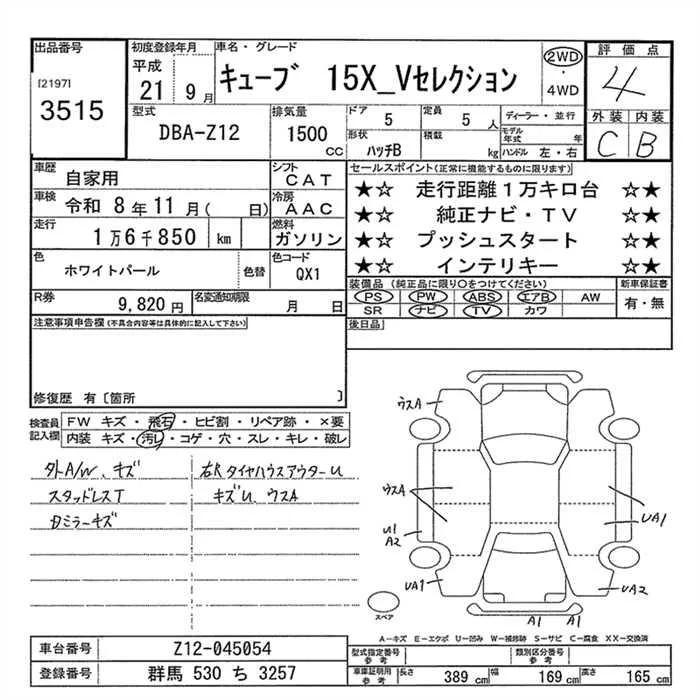 出品番号
[2197]
3515
初度登録年月
平成
21 9 月
車名・グレード
キューブ 15X_Vセレクション
2WD
・
4WD
評価点
4
外装 内装
C B
型式
DBA-Z12
排気量
1500
CC
ドア
5
定員
5 人
形状
ハッチB
積載
kg
ディーラー・並行
モデル年式 年
ハンドル 左・右
車歴
自家用
シフト
CAT
車検 令和 8年 11月( 日)
冷房
AAC
走行
1万6千850 km
燃料
ガソリン
色
ホワイトパール
色替
色コード
QX1
R券
9,820 円
名変通知期限
月 日
セールスポイント(正常に機能するものに限ります)
★☆ 走行距離1万キロ台 ☆★
★☆ 純正ナビ・TV ☆★
★☆ プッシュスタート ☆★
★☆ インテリキー ☆★
装備品(純正品に限り○をつけてください)
PS PW ABS エアB AW
SR ナビ TV カワ
新車保証書
有・無
後日品
注意事項申告欄(不具合内容等は具体的に記入して下さい)
修復歴 有〔箇所 〕
検査員
記入欄
FW キズ・飛石・ヒビ割・リペア跡・×要
内装 キズ・汚レ・コゲ・穴・スレ・キレ・破レ
外A/W、キズ
スタッドレスT
日ミラーキズ
右Rタイヤハウスアウターu
キズu、ウスA
ウスA
ウスA
u1
A2
UA1
UA1
UA2
A1 A1
スペア
A−キズ E−エクボ U−凹み W−補修跡 S−サビ C−腐食 XX−交換済
車台番号
Z12-045054
登録番号
群馬 530 ち 3257
型式指定番号
参考
類別区分番号
参考
車庫証明用
参考
長さ 389 cm
幅 169 cm
高さ 165 cm